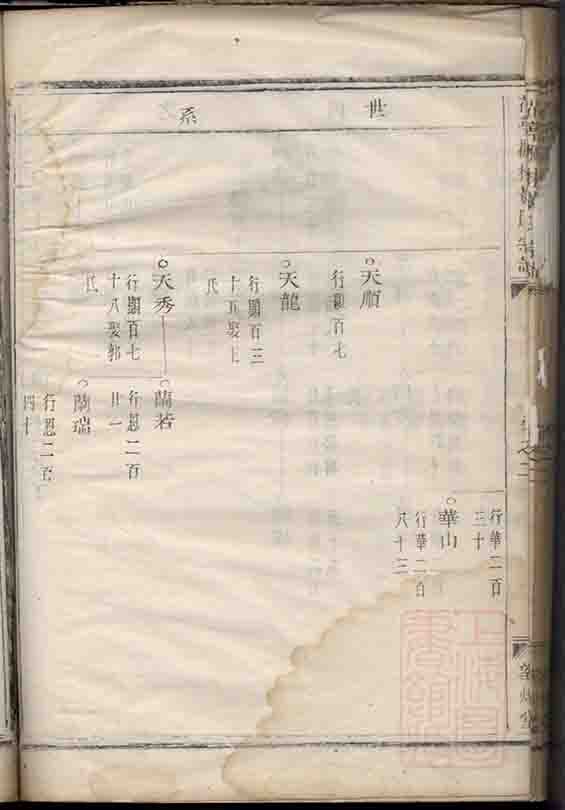 世系
行華二百
三十
華山
行華二百
八十三
天順
行顯百七
天龍
行顯百三
十五娶王
氏
天秀
行顯百七
十八娶郭
氏
蘭若
行恩二百
廿一
蘭瑞
行恩二百
四十
上海圖
書館藏